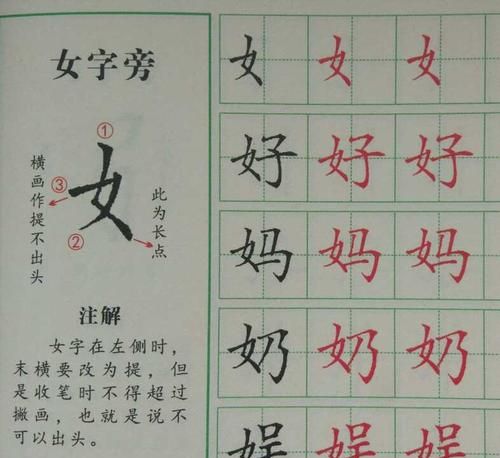 女字旁
①
横画作提不出头
③
女
②
此为长点
注解
女字在左侧时，
末横要改为提，但
是收笔时不得超过
撇画，也就是说不
可以出头。
女 女 女
好 好 好
妈 妈 妈
奶 奶 奶